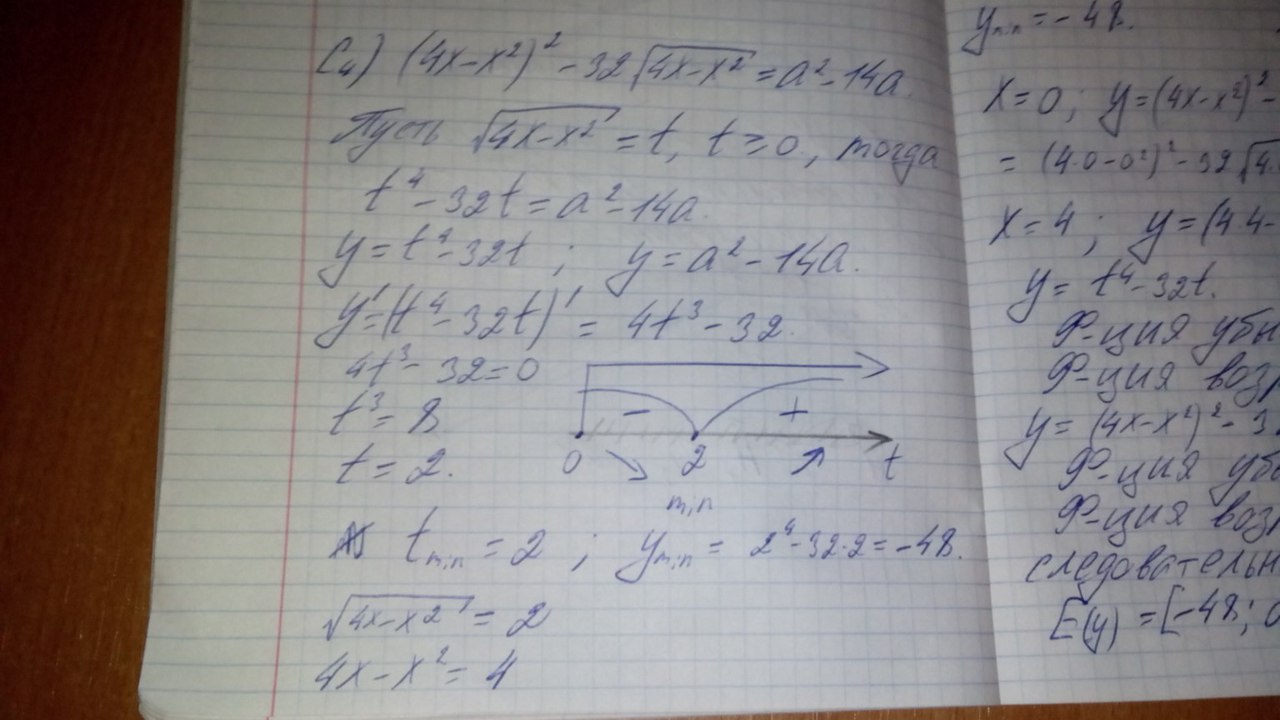 C₄) (4x-x²)² - 32√(4x-x²) = a² - 14a.
Пусть √(4x-x²) = t, t ≥ 0, тогда
t⁴ - 32t = a² - 14a.
y = t⁴ - 32t ; y = a² - 14a.
y' = (t⁴ - 32t)' = 4t³ - 32.
4t³ - 32 = 0
t³ = 8
t = 2.
- +
0 2 t
min
t min = 2 ; y min = 2⁴ - 32·2 = -48.
√(4x-x²) = 2
4x - x² = 4
y min = -48.
x = 0; y = (4x-x²)² -
= (4·0-0²)² - 32√4.
x = 4; y = (4·4-
y = t⁴ - 32t.
Ф-ция убы
Ф-ция возр
y = (4x-x²)² - 3
Ф-ция убы
Ф-ция возр
следовательн
E(y) = [-48; 0